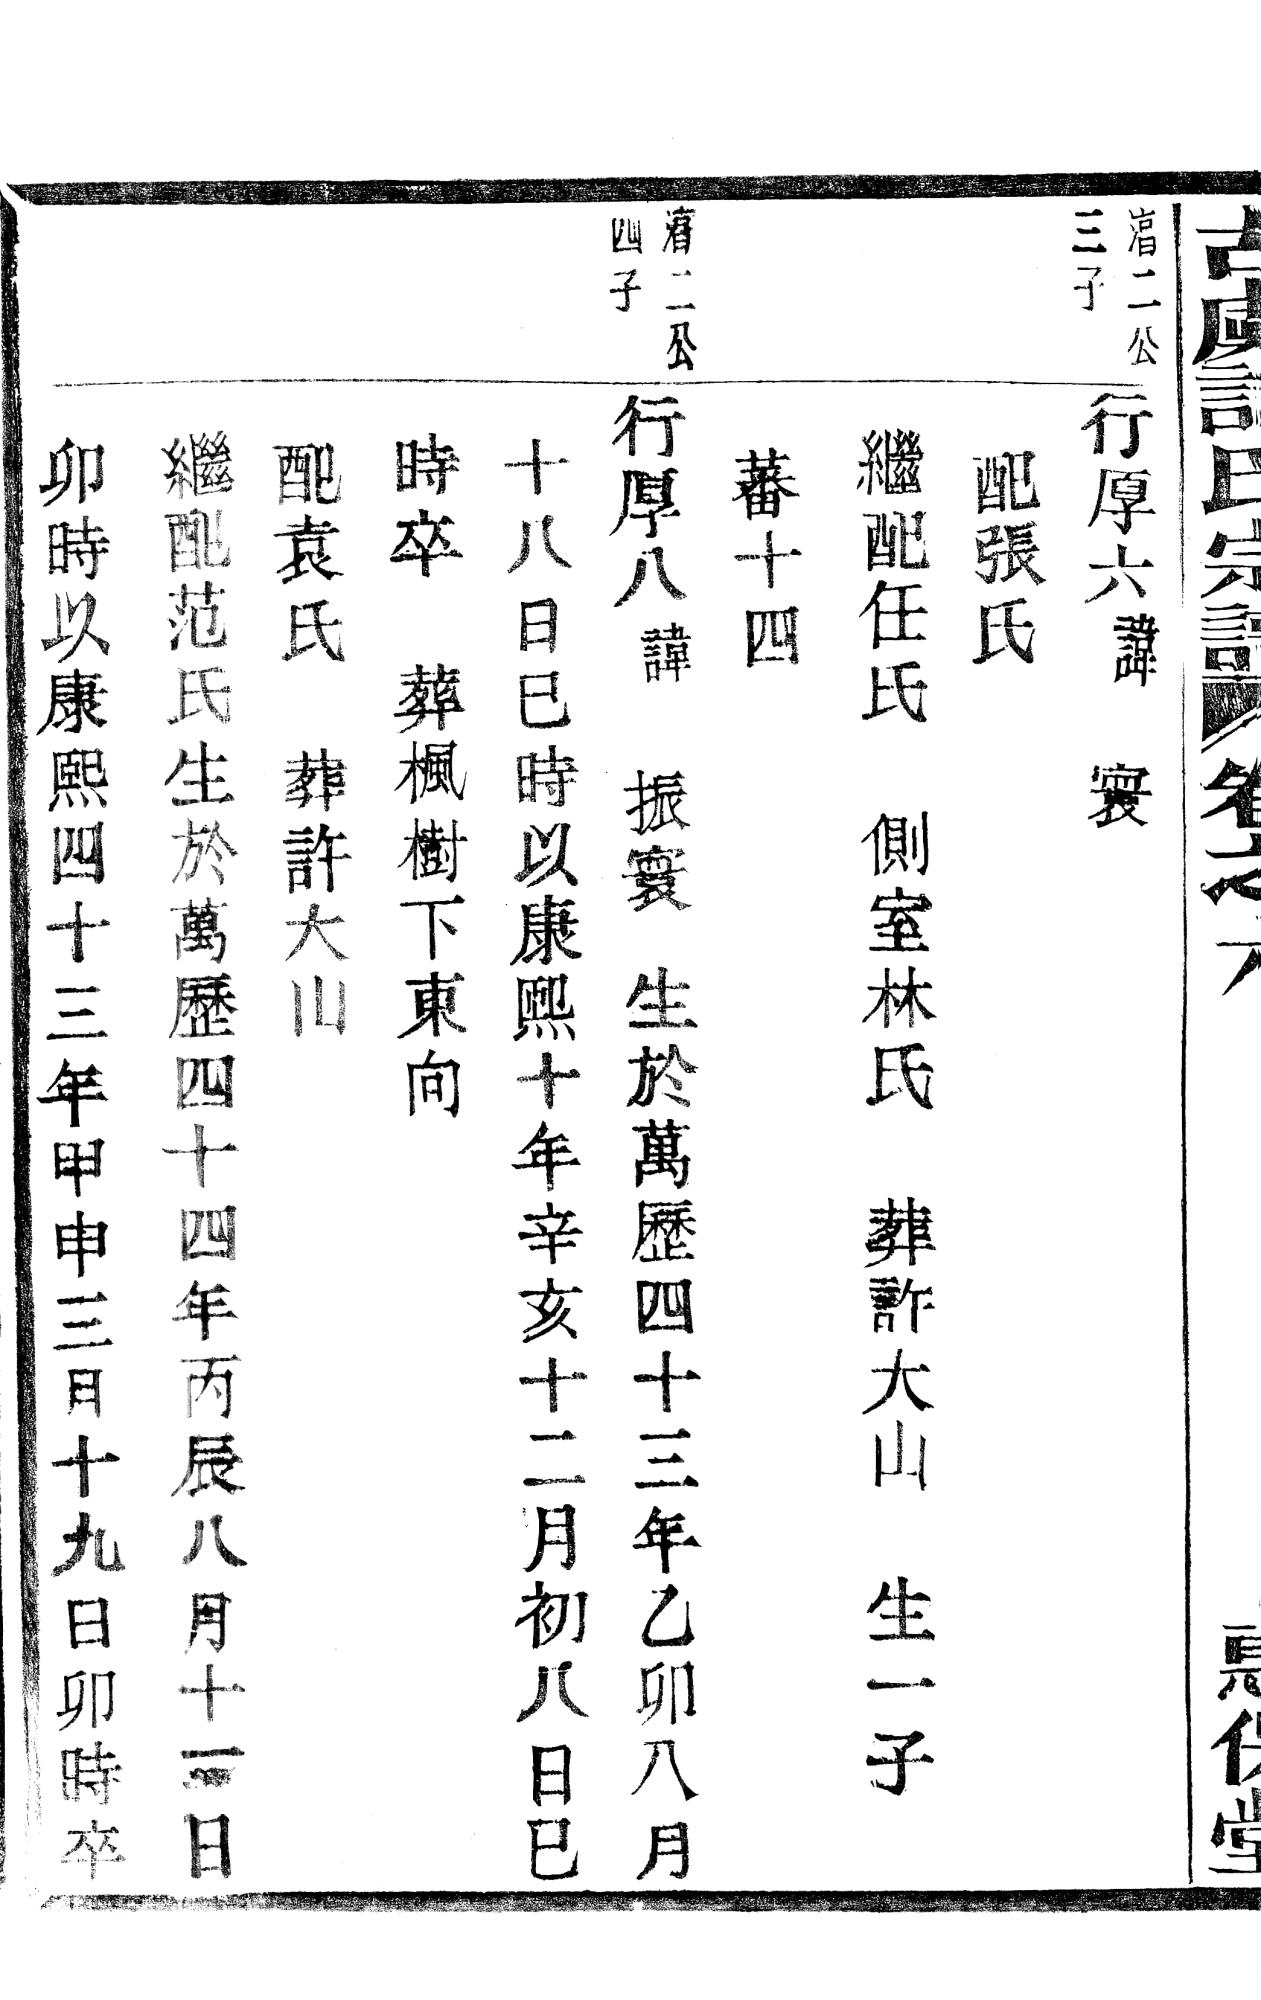 古 氏宗譜 卷之六 保堂
二公
三子
行厚六 諱 寰
配張氏
繼配任氏 側室林氏 葬許大山 生一子
蕃十四
二公
四子
行厚八 諱 振寰 生於萬歷四十三年乙卯八月
十八日巳時以康熙十年辛亥十二月初八日巳
時卒 葬楓樹下東向
配袁氏 葬許大山
繼配范氏生於萬歷四十四年丙辰八月十 日
卯時以康熙四十三年甲申三月十九日卯時卒